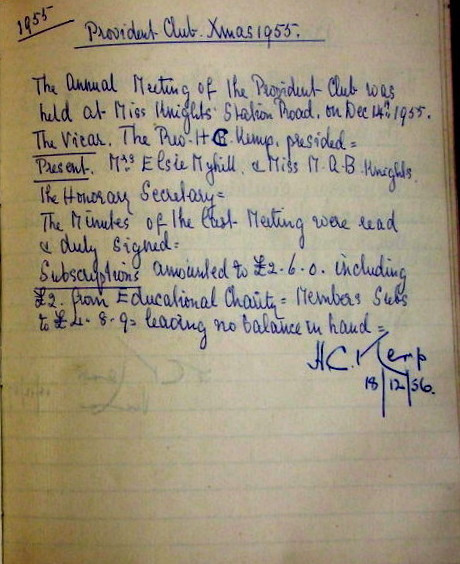 1955
Provident Club. Xmas 1955.
The Annual Meeting of the Provident Club was
held at Miss Knights' Station Road, on Dec 14th 1955.
The Vicar, The Rev. H C. Kemp, presided =
Present. Mrs Elsie Myhill, & Miss M. A. B. Knights
The Honorary Secretary =
The Minutes of the Last Meeting were read
& duly signed =
Subscriptions amounted to £2. 6. 0. including
£2. from Educational Charity = Members Subs
to £4. 8. 9 = leaving no balance in hand =
H C. Kemp
18 | 12 | 56.